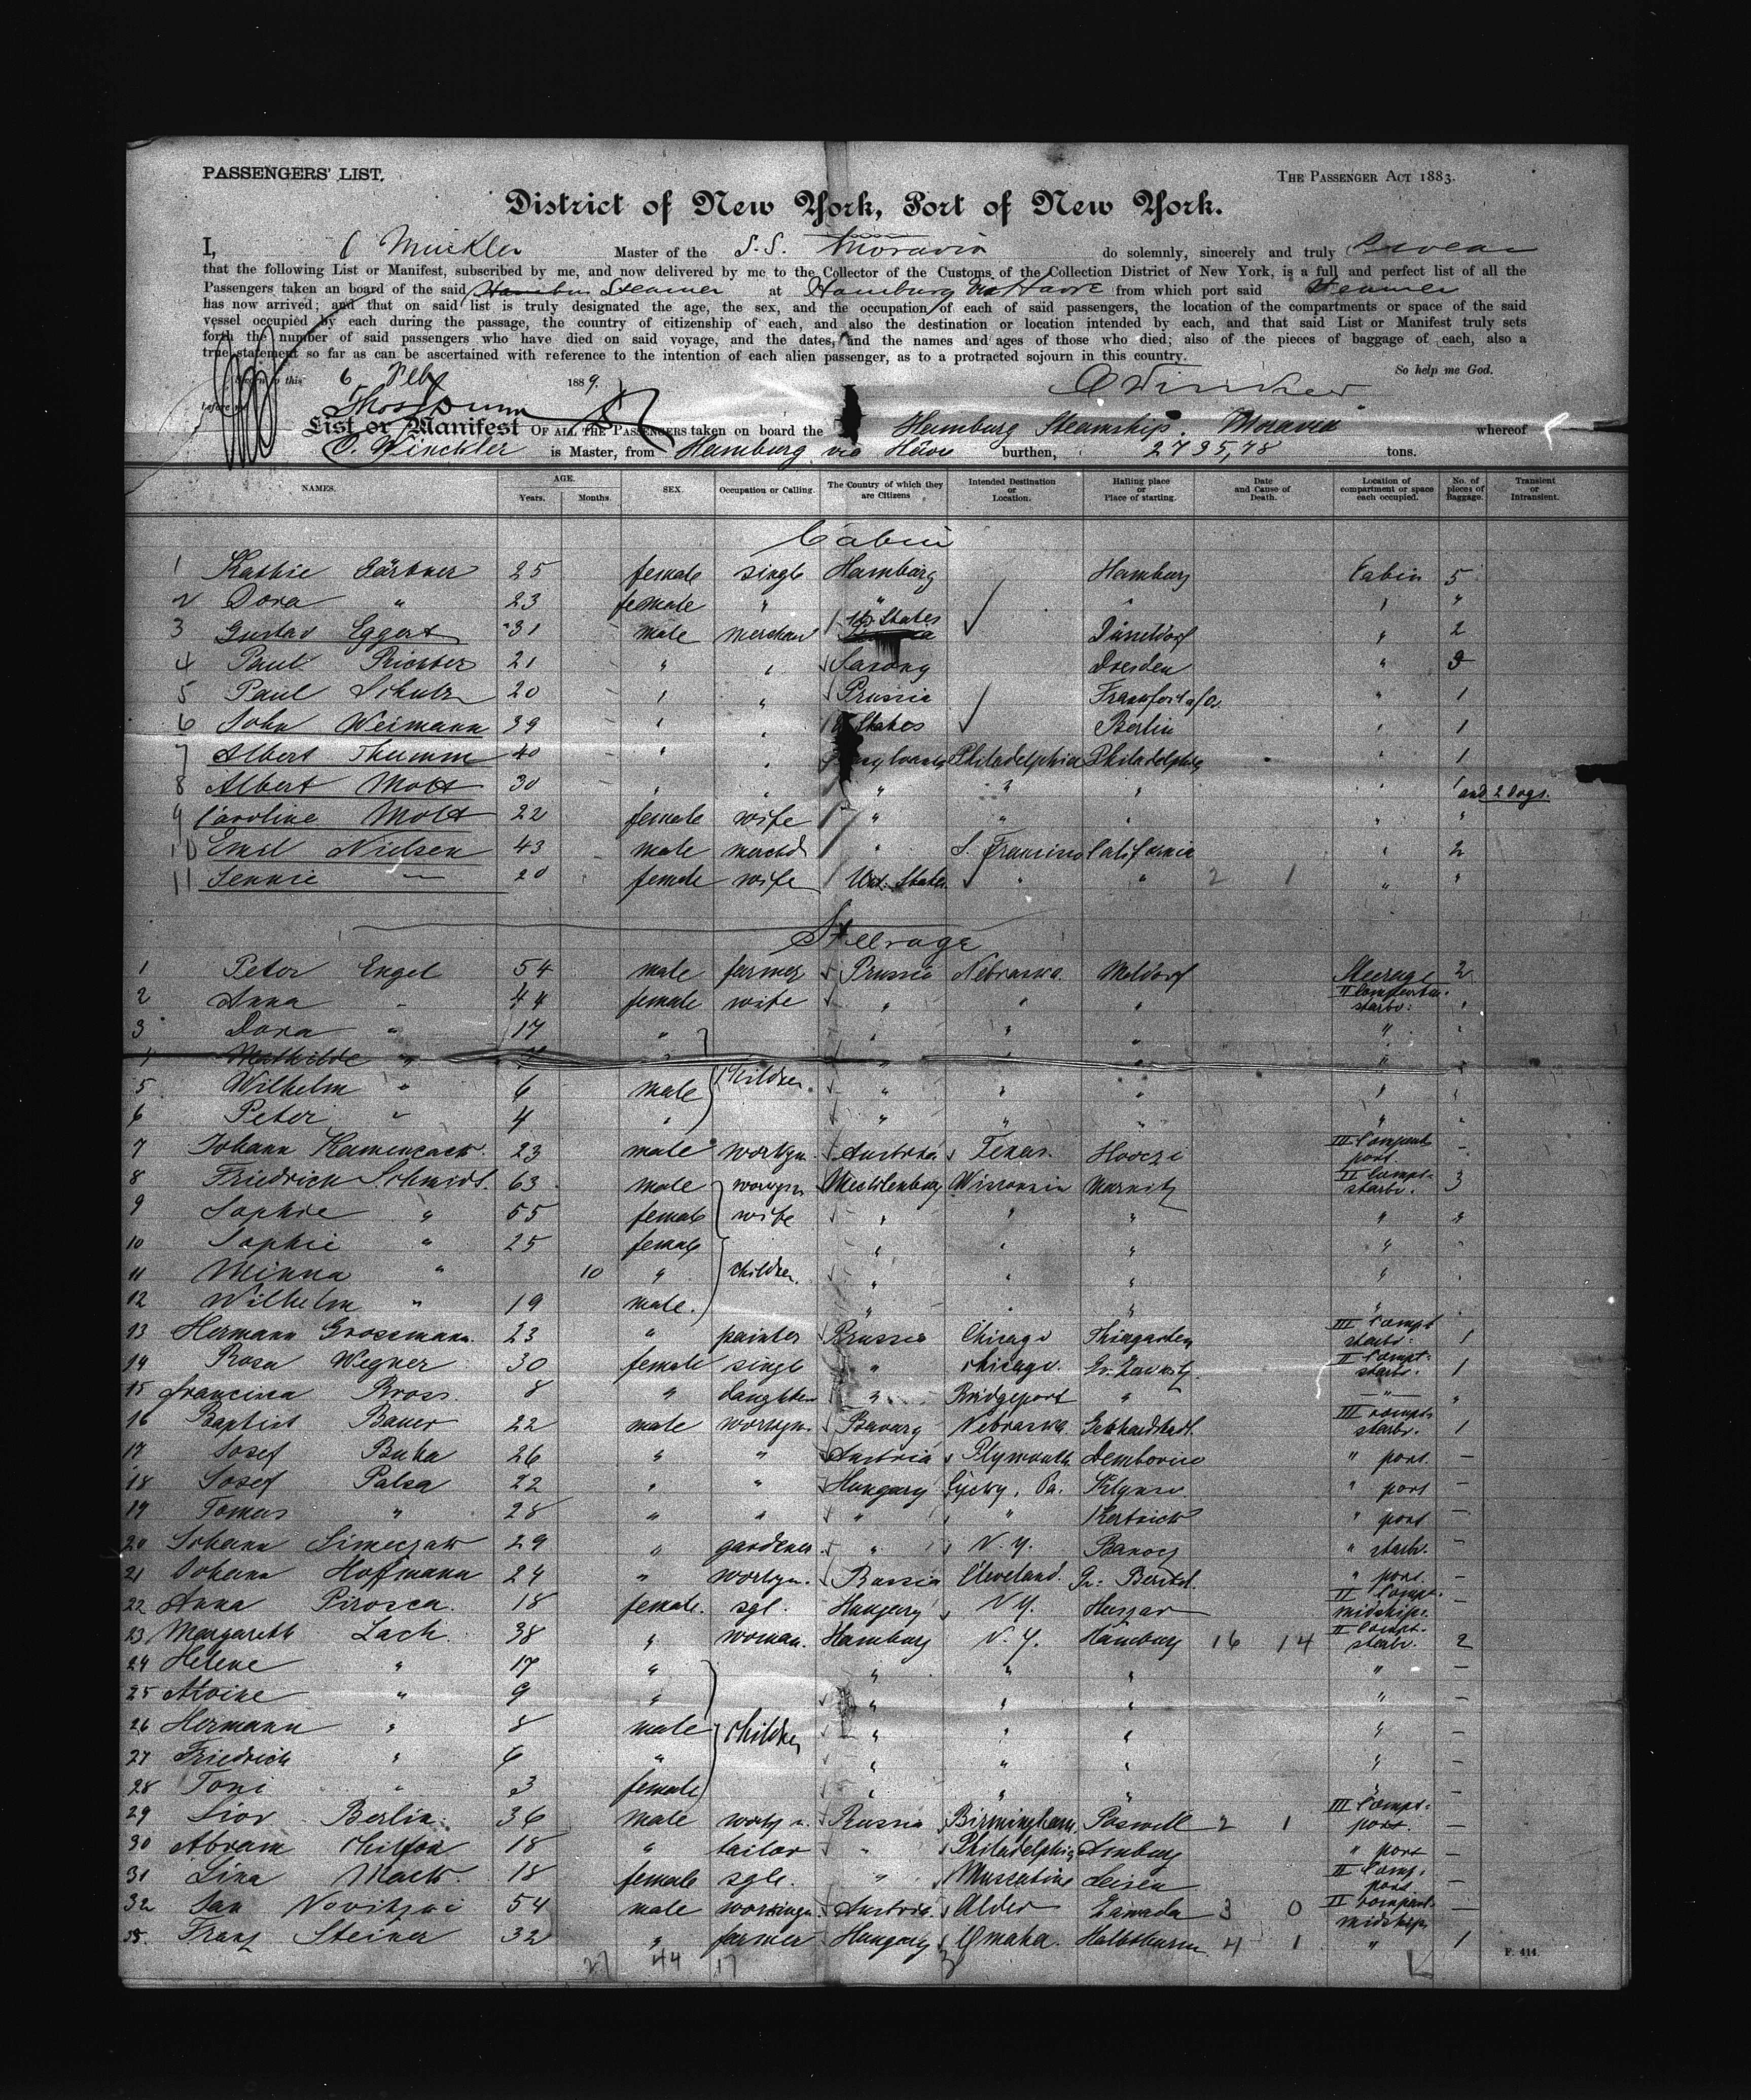 PASSENGERS' LIST.
THE PASSENGER ACT 1883.
District of New York, Port of New York.
I, C Winckler Master of the S.S. Moravia do solemnly, sincerely and truly swear
that the following List or Manifest, subscribed by me, and now delivered by me to the Collector of the Customs of the Collection District of New York, is a full and perfect list of all the
Passengers taken an board of the said Steamer at Hamburg via Havre from which port said Steamer
has now arrived; and that on said list is truly designated the age, the sex, and the occupation of each of said passengers, the location of the compartments or space of the said
vessel occupied by each during the passage, the country of citizenship of each, and also the destination or location intended by each, and that said List or Manifest truly sets
forth the number of said passengers who have died on said voyage, and the dates, and the names and ages of those who died; also of the pieces of baggage of each, also a
true statement so far as can be ascertained with reference to the intention of each alien passenger, as to a protracted sojourn in this country.
So help me God.
this 6 Feb 1889.
C Winckler
List or Manifest OF ALL THE PASSENGERS taken on board the Hamburg Steamship Moravia whereof
C. Winckler is Master, from Hamburg via Havre burthen, 2735,78 tons.
NAMES. AGE. Years. Months. SEX. Occupation or Calling. The Country of which they are Citizens Intended Destination or Location. Hailing place or Place of starting. Date and Cause of Death. Location of compartment or space each occupied. No. of pieces of Baggage. Transient or Intransient.
Cabin
1 Kathie Gärtner 25 female single Hamburg Hamburg Cabin 5
2 Dora " 23 female " " " " "
3 Gustav Eggert 31 male merchant States Düsseldorf " 2
4 Paul Richter 21 " " Saxony Dresden " 3
5 Paul Schulz 20 " " Prussia Frankfort a/O. " 1
6 John Weimann 39 " " States Berlin " 1
7 Albert Thumm 40 " " Philadelphia Philadelphia " 1
8 Albert Molt 30 " " " " " " 1 and 2 Dogs.
9 Caroline Molt 22 female wife " " " " "
10 Emil Nielsen 43 male merchd " S. Francisco California " 2
11 Jennie — 20 female wife Un. States " " 2 1 " "
Steerage
1 Peter Engel 54 male farmer Prussia Nebraska Meldorf Steerage 2
2 Anna " 44 female wife " " " II Compartm. starbr: "
3 Dora " 17 " " " " " "
4 Mathilde " " " " " " "
5 Wilhelm " 6 male children " " " " "
6 Peter " 4 " " " " " "
7 Johann 23 male workgm. Austria Texas III Compart port —
8 Friedrich Schmidt 63 male workgm Mecklenburg Wisconsin Marnitz II Compt. starbr. 3
9 Sophie " 55 female wife " " " " "
10 Sophie " 25 female " " " " "
11 Minna " 10 " children " " " " "
12 Wilhelm " 19 male. " " " " "
13 Hermann Grossmann 23 " painter Prussia Chicago Thiergarten III Compt starbr: 1
14 Rosa Wegner 30 female single " Chicago. II Compt: starbr: 1
15 Francisca Bross 8 " daughter " Bridgeport " — " — "
16 Baptist Bauer 22 male workgm. Bavary Nebraska III compt. starbr. 1
17 Josef Buha 26 " " Austria Plymouth " port. —
18 Josef Palsa 22 " " Hungary Pa. " port —
19 Tomas " 28 " " " " " port —
20 Johann Simeczak 29 " gardener " N.Y. " starbr. —
21 Johann Hoffmann 24 " workgm. Russia Cleveland. " port —
22 Anna Pirosca 18 female. sgl. Hungary N.Y. Huszar II Compt. midships. —
23 Margareth Lach 38 " woman. Hamburg N.Y. Hamburg 16 14 II Compt. starbr. 2
24 Helene " 17 " " " " " —
25 Alvine " 9 " " " " " —
26 Hermann " 8 male children " " " " —
27 Friedrich " 6 " " " " " —
28 Toni " 3 female " " " " —
29 Berlin 36 male Russia Birmingham 2 1 III Compt: port. —
30 Abram 18 " tailor " Philadelphia " port —
31 Lina 18 female sgle. " Muscatine II Comp. port —
32 Jan 54 male Austria. 3 0 II compart. midship. —
33. Franz Steiner 32 " farmer Hungary Omaha. 4 1 " 1
27 44 17
F. 414.